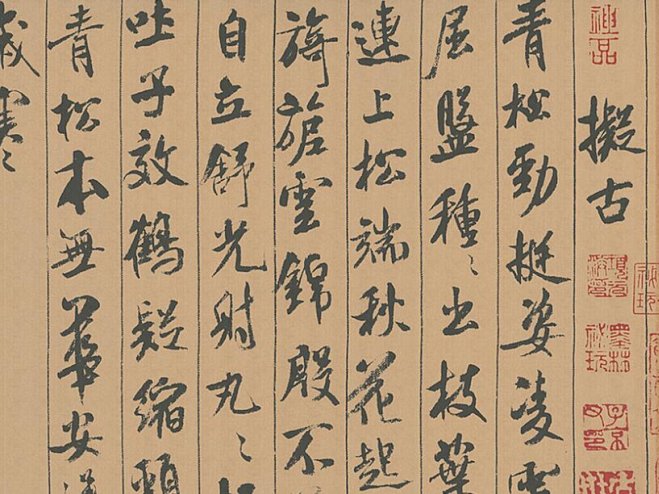 神品
擬古
青松勁挺姿凌
屈盤種〻出枝葉
連上松端秋花起
旖旎雲錦殷不
自立舒光射丸〻
吐子效鶴疑縮頸
青松本無華安
歲寒〻